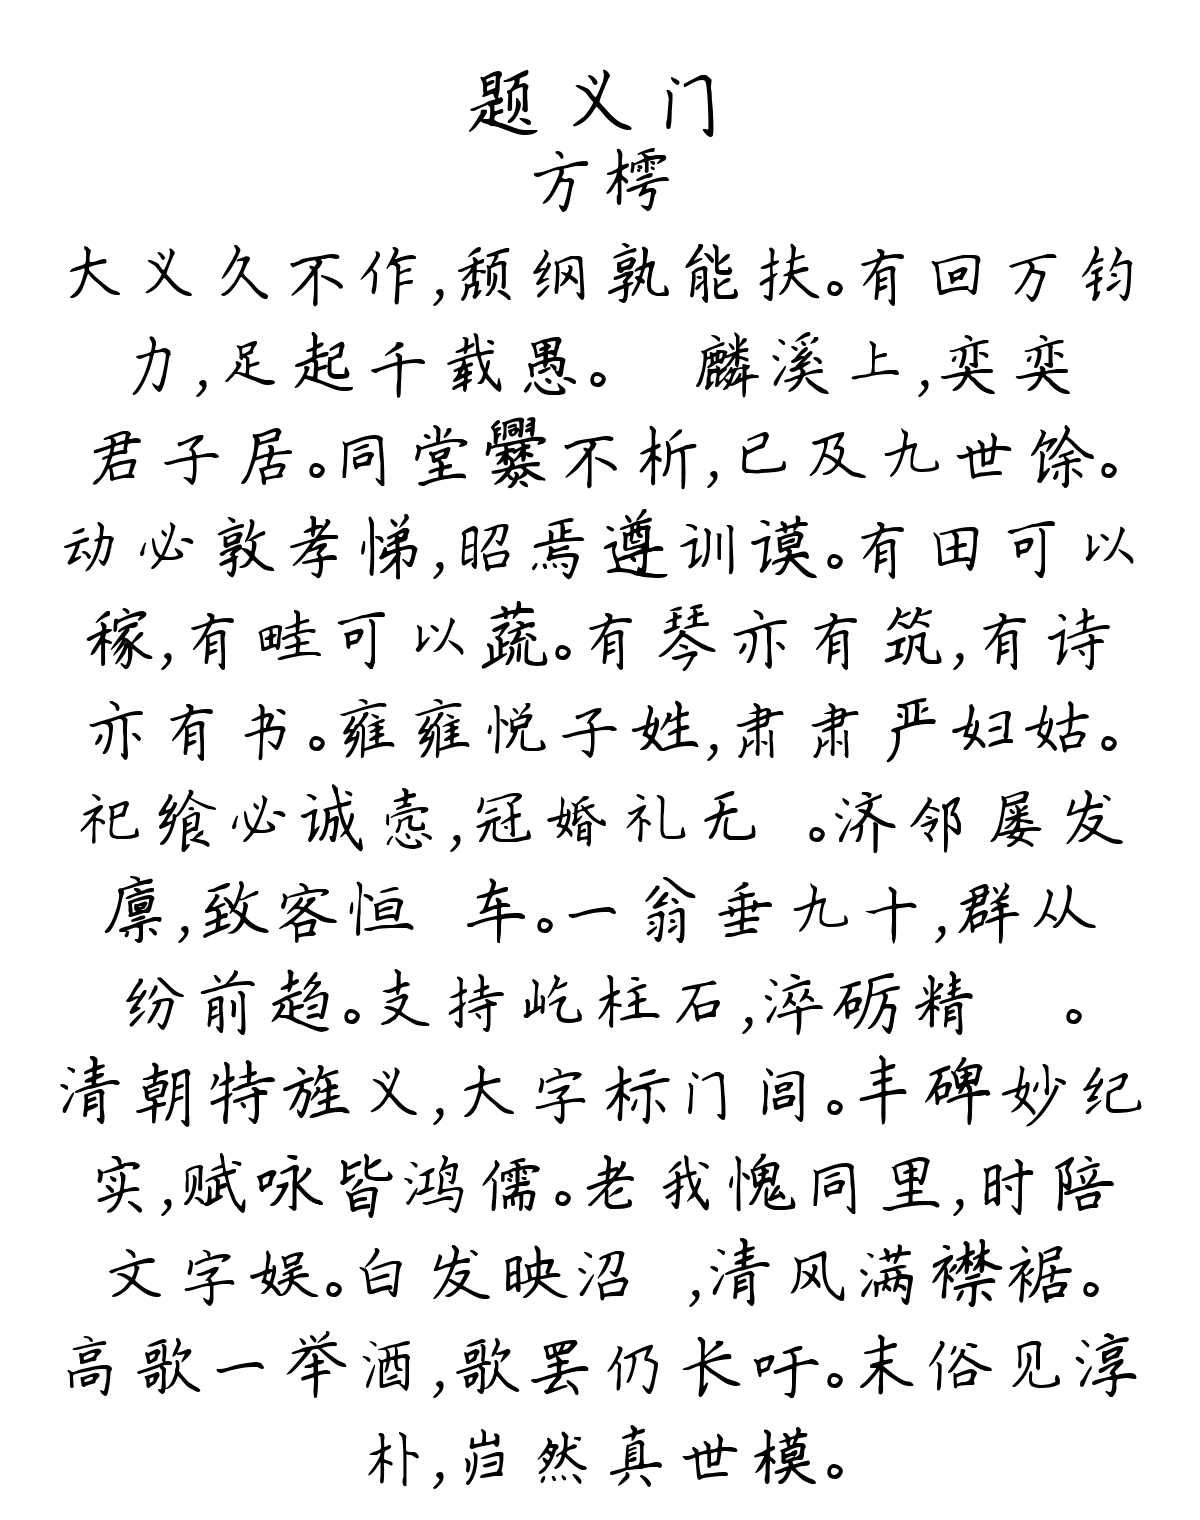 题义门
方樗
大义久不作,颓纲孰能扶。有回万钧
力,足起千载愚。 麟溪上,奕奕
君子居。同堂爨不析,已及九世馀。
动必敦孝悌,昭焉遵训谟。有田可以
稼,有畦可以蔬。有琴亦有筑,有诗
亦有书。雍雍悦子姓,肃肃严妇姑。
祀飨必诚悫,冠婚礼无 。济邻屡发
廪,致客恒 车。一翁垂九十,群从
纷前趋。支持屹柱石,淬砺精 。
清朝特旌义,大字标门闾。丰碑妙纪
实,赋咏皆鸿儒。老我愧同里,时陪
文字娱。白发映沼 ,清风满襟裾。
高歌一举酒,歌罢仍长吁。末俗见淳
朴,岿然真世模。